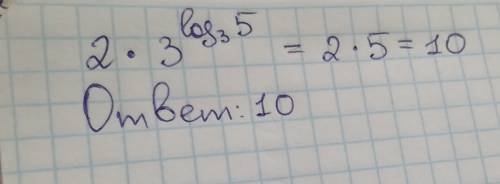 2 · 3^{log₃5} = 2 · 5 = 10
Ответ: 10